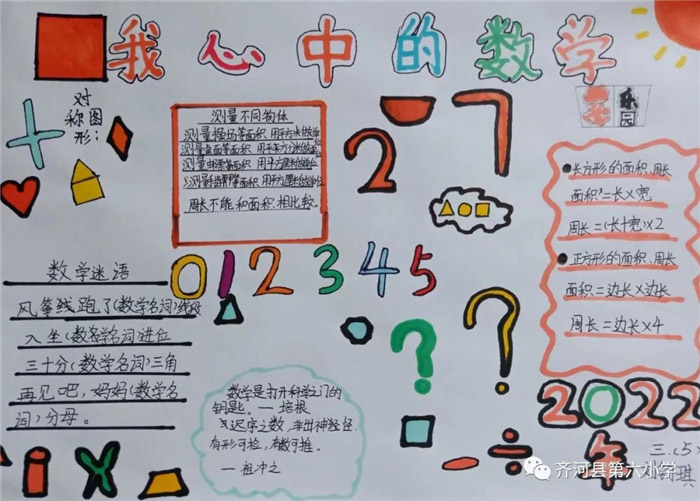 我心中的数学
对
称图
形:
测量不同物体
测量操场等面积 用平方米做单位
测量桌面等面积 用平方分米做单位
测量邮票等面积 用平方厘米做单位
周长不能和面积相比较。
2 7
乐
园
●长方形的面积、周长
面积=长×宽
周长=(长+宽)×2
●正方形的面积、周长
面积=边长×边长
周长=边长×4
0 1 2 3 4 5
数学迷语
风筝线跑了(数学名词)线段
入坐(数学名词)进位
三十分(数学名词)三角
再见吧,妈妈(数学名
词)分母。
? ?
数学是打开科学之门的
钥匙。—培根
迟序之数,非出神怪,
有形可检,有数可推。
—祖冲之
2022
年
- ÷
三.(5)
齐河县第六小学
琪